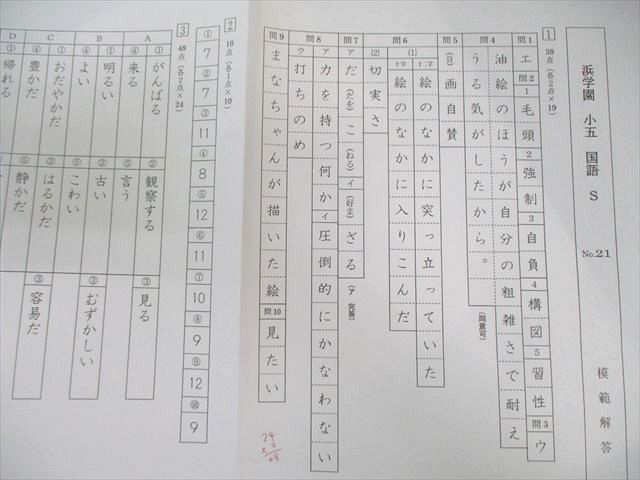 浜学園 小五 国語 S No.21 模範解答
1 38点(各2点×19)
問1 エ 問2 1 毛頭 2 強制 3 自負 4 構図 5 習性 問3 ウ
問4 油絵のほうが自分の粗雑さで耐え
うる気がしたから。(同意可)
問5 (自)画自賛
問6 (1) 十二字 絵のなかに突っ立っていた
十字 絵のなかに入りこんだ
(2) 切実さ
問7 ア だ(だを)こ(ねる) イ(好き)ざる (ア完答)
問8 ア 力を持つ何か イ 圧倒的にかなわない
ウ 打ちのめ
問9 まなちゃんが描いた絵 問10 見たい
74
2 10点(各1点×10)
① 7 ② 7 ③ 11 ④ 8 ⑤ 12 ⑥ 11 ⑦ 10 ⑧ 9 ⑨ 12 ⑩ 9
3 48点(各2点×24)
A ① がんばる ② 観察する ③ 見る
④ 来る ⑤ 言う
B ① 明るい ② 古い ③ むずかしい
④ よい ⑤ こわい
C ① おだやかだ ② はるかだ ③ 容易だ
④ 豊かだ ⑤ 静かだ
D ① 帰れる